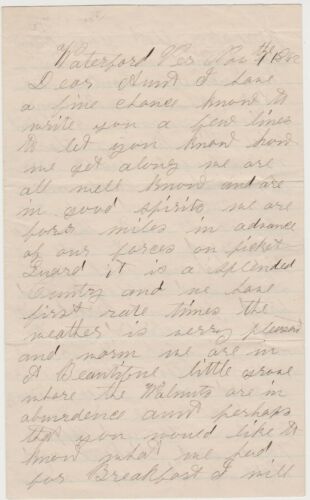 Waterford Ver Nov the 1 1862
Dear Aunt I have
a fine chance know to
write you a few lines
to let you know how
we get along we are
all well know and are
in good spirits we are
four miles in advance
of our forces on picket
Guard it is a splended
Country and we have
first rate times the
weather is verry pleasant
and worm we are in
A Beautifue little grove
where the Walnuts are in
abundence aunt perhaps
that you would like to
know what we had
for Breakfast I will